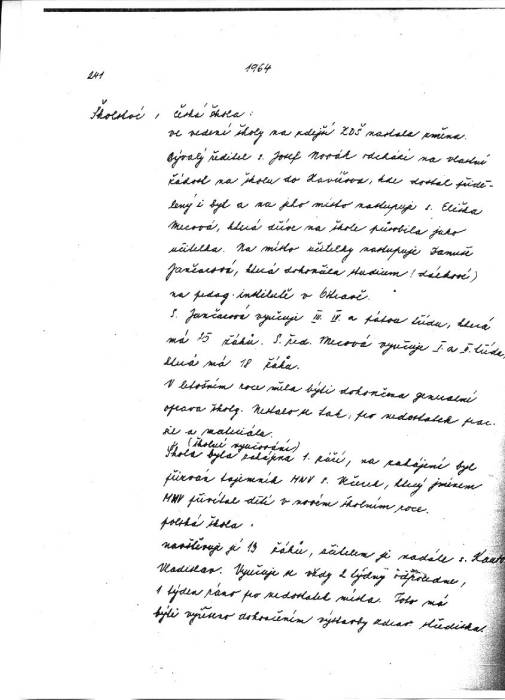 241
1964
Školství, česká škola:
ve vedení školy na zdejší ZDŠ nastala změna.
Bývalý ředitel s. Josef Novák odchází na vlastní
žádost na školu do Havířova, kde dostal přidě-
lený i byt a na jeho místo nastupuje s. Eliška
Mecová, která dříve na škole působila jako
učitelka. Na místo učitelky nastupuje Danuše
Jančarová, která dokončila studium (dálkové)
na pedag. institutě v Ostravě.
S. Jančarová vyučuje III. IV. a pátou třídu, která
má 25 žáků. S. řed. Mecová vyučuje I. a II. třídu,
která má 18 žáků.
V letošním roce měla býti dokončena generální
oprava školy. Nestalo se tak, pro nedostatek prac.
sil a materiálu.
(školní vyučování)
Škola byla zahájena 1. září, na zahájení byl
přizván tajemník MNV s. , který jménem
MNV přivítal děti v novém školním roce.
polská škola.
navštěvuje ji 19 žáků, učitelem je nadále s.
Vladislav. Vyučuje se vždy 2 týdny odpoledne,
1 týden ráno pro nedostatek místa. Toto má
býti vyřešeno dokončením výstavby zdrav. střediska.